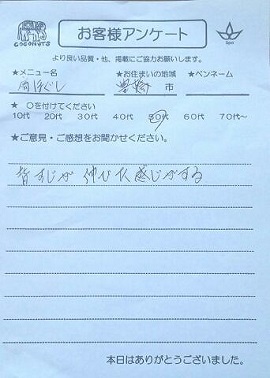 COCONUTS
お客様アンケート
Spa
より良い品質・他、掲載にご協力お願いします。
★メニュー名 ★お住まいの地域 ★ペンネーム
肩ほぐし 豊橋 市
★ ○を付けてください
10代 20代 30代 40代 50代 60代 70代～
★ご意見・ご感想をお聞かせください。
背すじが 伸びた感じがする
本日はありがとうございました。